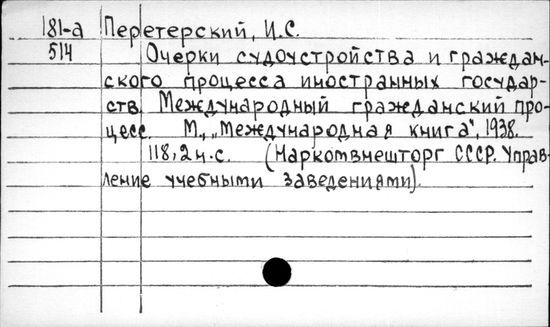 181-а Перетерский, И.С.
514 Очерки судоустройства и граждан-
ского процесса иностранных государ-
ств. Международный гражданский про-
цесс. М., „Международная книга", 1938.
118, 2 н.с. (Наркомвнешторг СССР. Управ-
ление учебными заведениями).